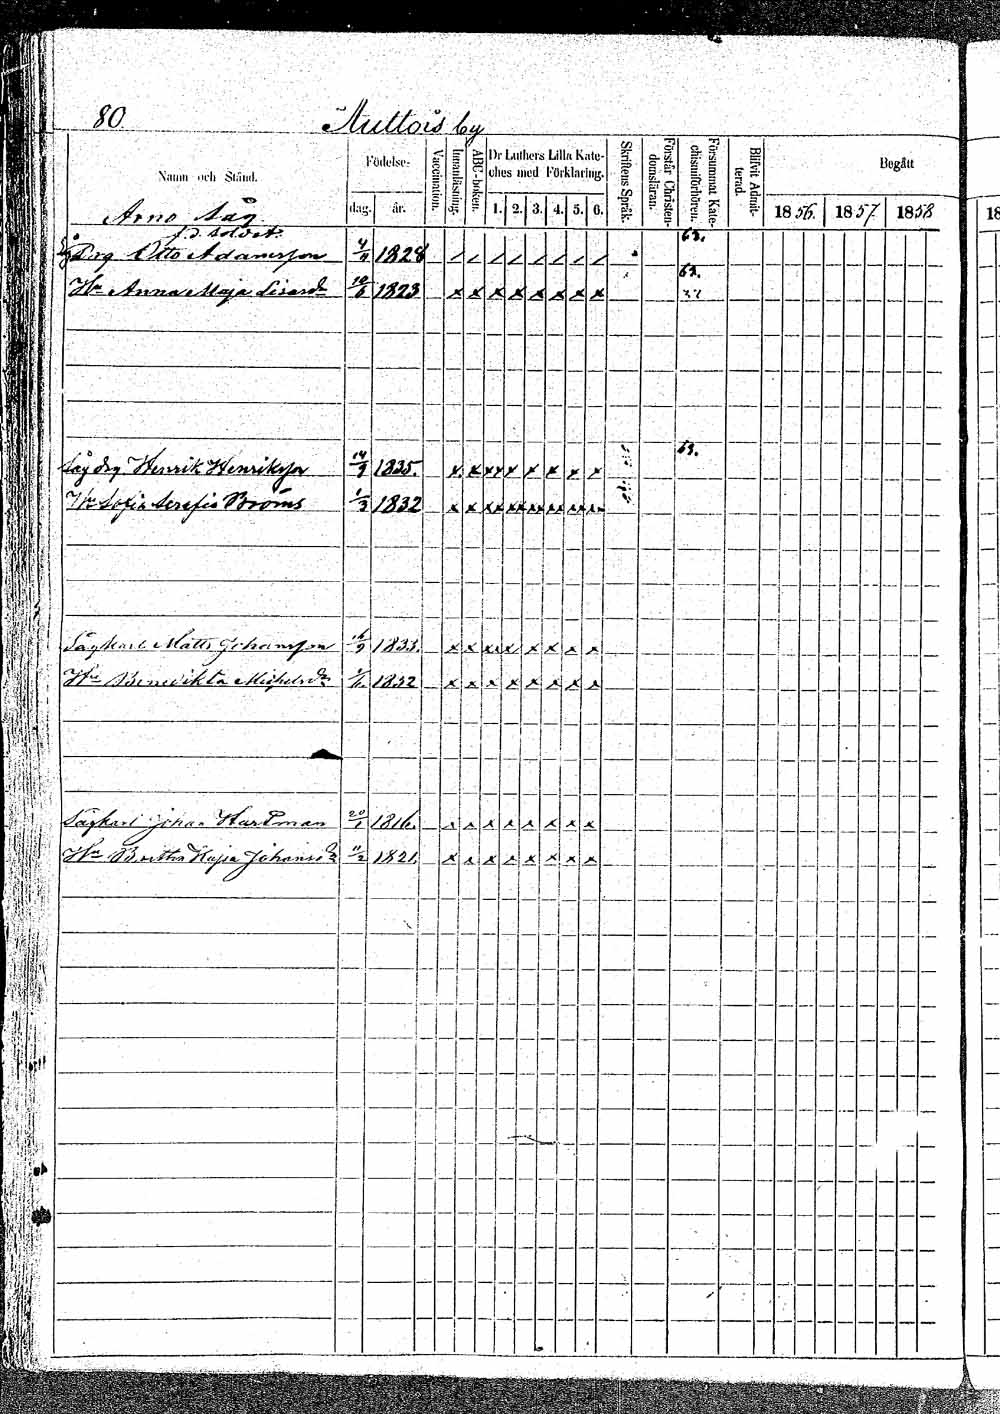 80. Nuttois by
Namn och Stånd.
Födelse-
dag. år.
Vaccination.
Innanläsning.
ABC-boken.
Dr Luthers Lilla Kate-
ches med Förklaring.
1. 2. 3. 4. 5. 6.
Skriftens Språk.
Förstår Christen-
domsläran.
Försummat Kate-
chismiförhören.
Blifvit Admit-
terad.
Begått
1856. 1857. 1858
Arno Såg.
f.d. soldat. 63.
Drg Otto Adamsson 4/9 1828
63.
Hu Anna Maja Lisasdr 1823
63.
Såg drg Henrik Henriksson 14/9 1835.
Hu Sofia Serafia Broms 1/3 1832
Sågkarl Matts Johansson 16/9 1833.
Hu Benedikta Michelsdr 1832
Sågkarl Johan Hartman 20/1 1816.
Hu Kajsa Johansdr 11/2 1821.